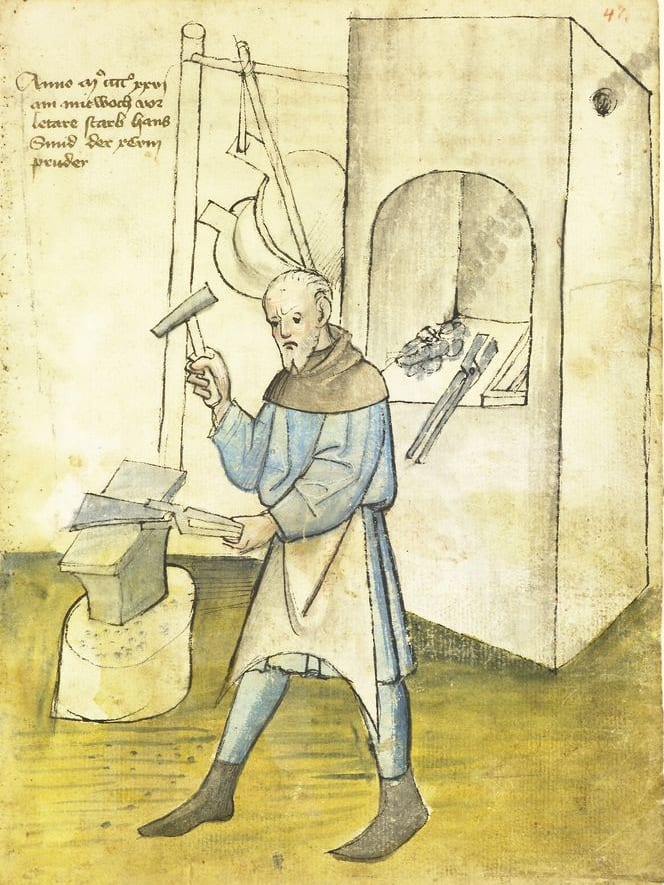 47.
Anno mº cccc xxvi
am mitwoch vor
letare starb hans
Smid der xcviii
pruder